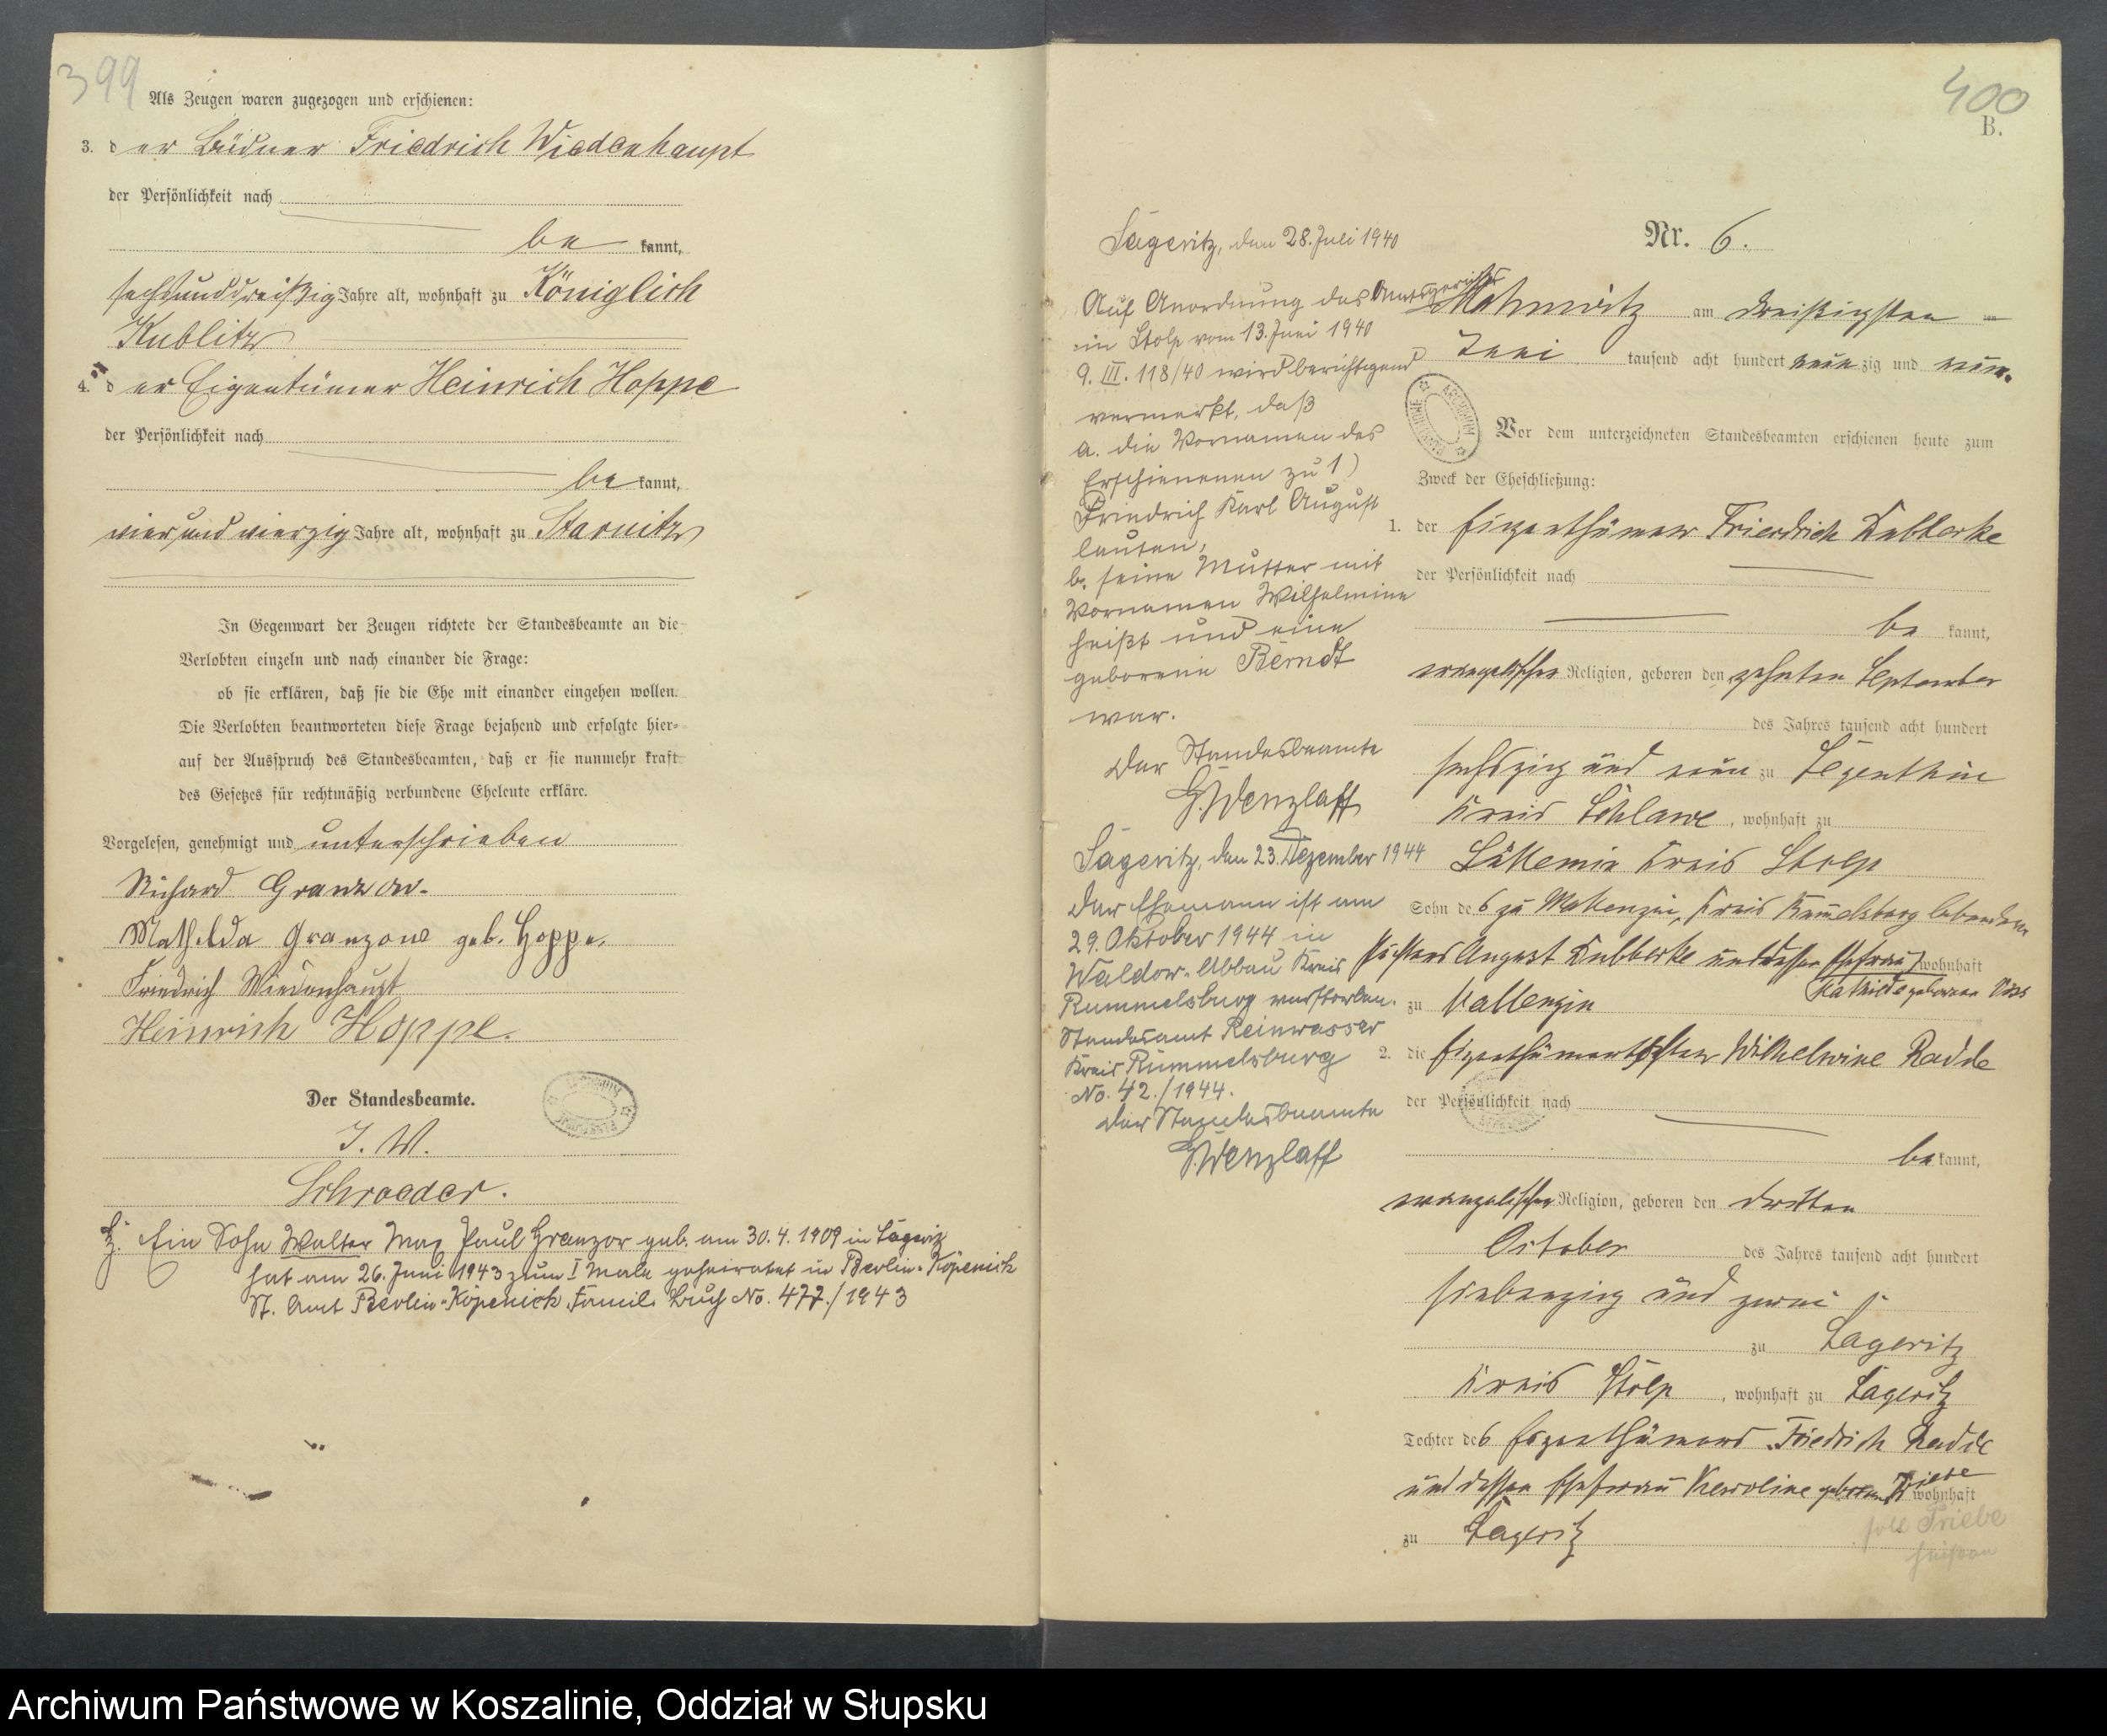 399
Als Zeugen waren zugezogen und erschienen:
3. der Büdner Friedrich Wiedenhaupt
der Persönlichkeit nach
be kannt,
sechsunddreißig Jahre alt, wohnhaft zu Königlich
Kublitz
4. der Eigentümer Heinrich Hoppe
der Persönlichkeit nach
be kannt,
vierundvierzig Jahre alt, wohnhaft zu Starnitz
In Gegenwart der Zeugen richtete der Standesbeamte an die
Verlobten einzeln und nach einander die Frage:
ob sie erklären, daß sie die Ehe mit einander eingehen wollen.
Die Verlobten beantworteten diese Frage bejahend und erfolgte hier-
auf der Ausspruch des Standesbeamten, daß er sie nunmehr kraft
des Gesetzes für rechtmäßig verbundene Eheleute erkläre.
Vorgelesen, genehmigt und unterschrieben
Richard Granzow.
Mathilda Granzow geb. Hoppe.
Friedrich Wiedenhaupt
Heinrich Hoppe.
Der Standesbeamte.
I. V.
Schroeder.
Ein Sohn Walter Max Paul Granzow geb. am 30.4.1909 in Lageritz
hat am 26. Juni 1943 zum I Male geheiratet in Berlin-Köpenick
St. Amt Berlin-Köpenick Famil. Buch No. 477./1943
400
B.
Nr. 6.
am dreißigsten
Juni tausend acht hundert neunzig und neun.
Vor dem unterzeichneten Standesbeamten erschienen heute zum
Zweck der Eheschließung:
1. der Eigenthümer Friedrich
der Persönlichkeit nach
be kannt,
evangelischer Religion, geboren den zehnten September
des Jahres tausend acht hundert
sechszig und neun zu
Kreis Schlawe, wohnhaft zu
Kreis Stolp
Sohn des zu Kreis Rummelsburg lebenden
August und dessen Ehefrau wohnhaft
geborene
zu
2. die Eigenthümertochter Wilhelmine Radde
der Persönlichkeit nach
be kannt,
evangelischer Religion, geboren den dritten
October des Jahres tausend acht hundert
siebenzig und zwei
zu Lageritz
Kreis Stolp, wohnhaft zu Lageritz
Tochter des Eigenthümers Friedrich Radde
und dessen Ehefrau Karoline geborene wohnhaft
zu Lageritz
soll Friebe
heissen
Lageritz, den 28. Juli 1940
Auf Anordnung des Amtsgerichts
in Stolp vom 13. Juni 1940
9. III. 118/40 wird berichtigend
vermerkt, daß
a. die Vornamen des
Erschienenen zu 1)
Friedrich Karl August
lauten,
b. seine Mutter mit
Vornamen Wilhelmine
heißt und eine
geborene Berndt
war.
Der Standesbeamte
G. Wenzlaff
Lageritz, den 23. Dezember 1944
Der Ehemann ist am
29. Oktober 1944 in
Waldow-Abbau Kreis
Rummelsburg verstorben.
Standesamt Reinwasser
Kreis Rummelsburg
No. 42./1944.
Der Standesbeamte
G. Wenzlaff
Archiwum Państwowe w Koszalinie, Oddział w Słupsku